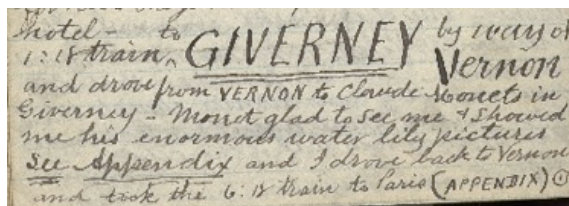 hotel - to GIVERNEY by way of
1:18 train, Vernon
and drove from VERNON to Clowde Monets in
Giverney - Monet glad to see me & showed
me his enormous water lily pictures
See Appendix and I drove back to Vernon
and took the 6:18 train to Paris (APPENDIX)